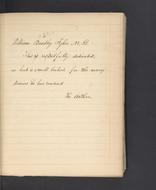 To
William Bradley Tyler M.D.
This is respectfully dedicated,
as but a small tribute for the many
favors he has rendered
The Author.